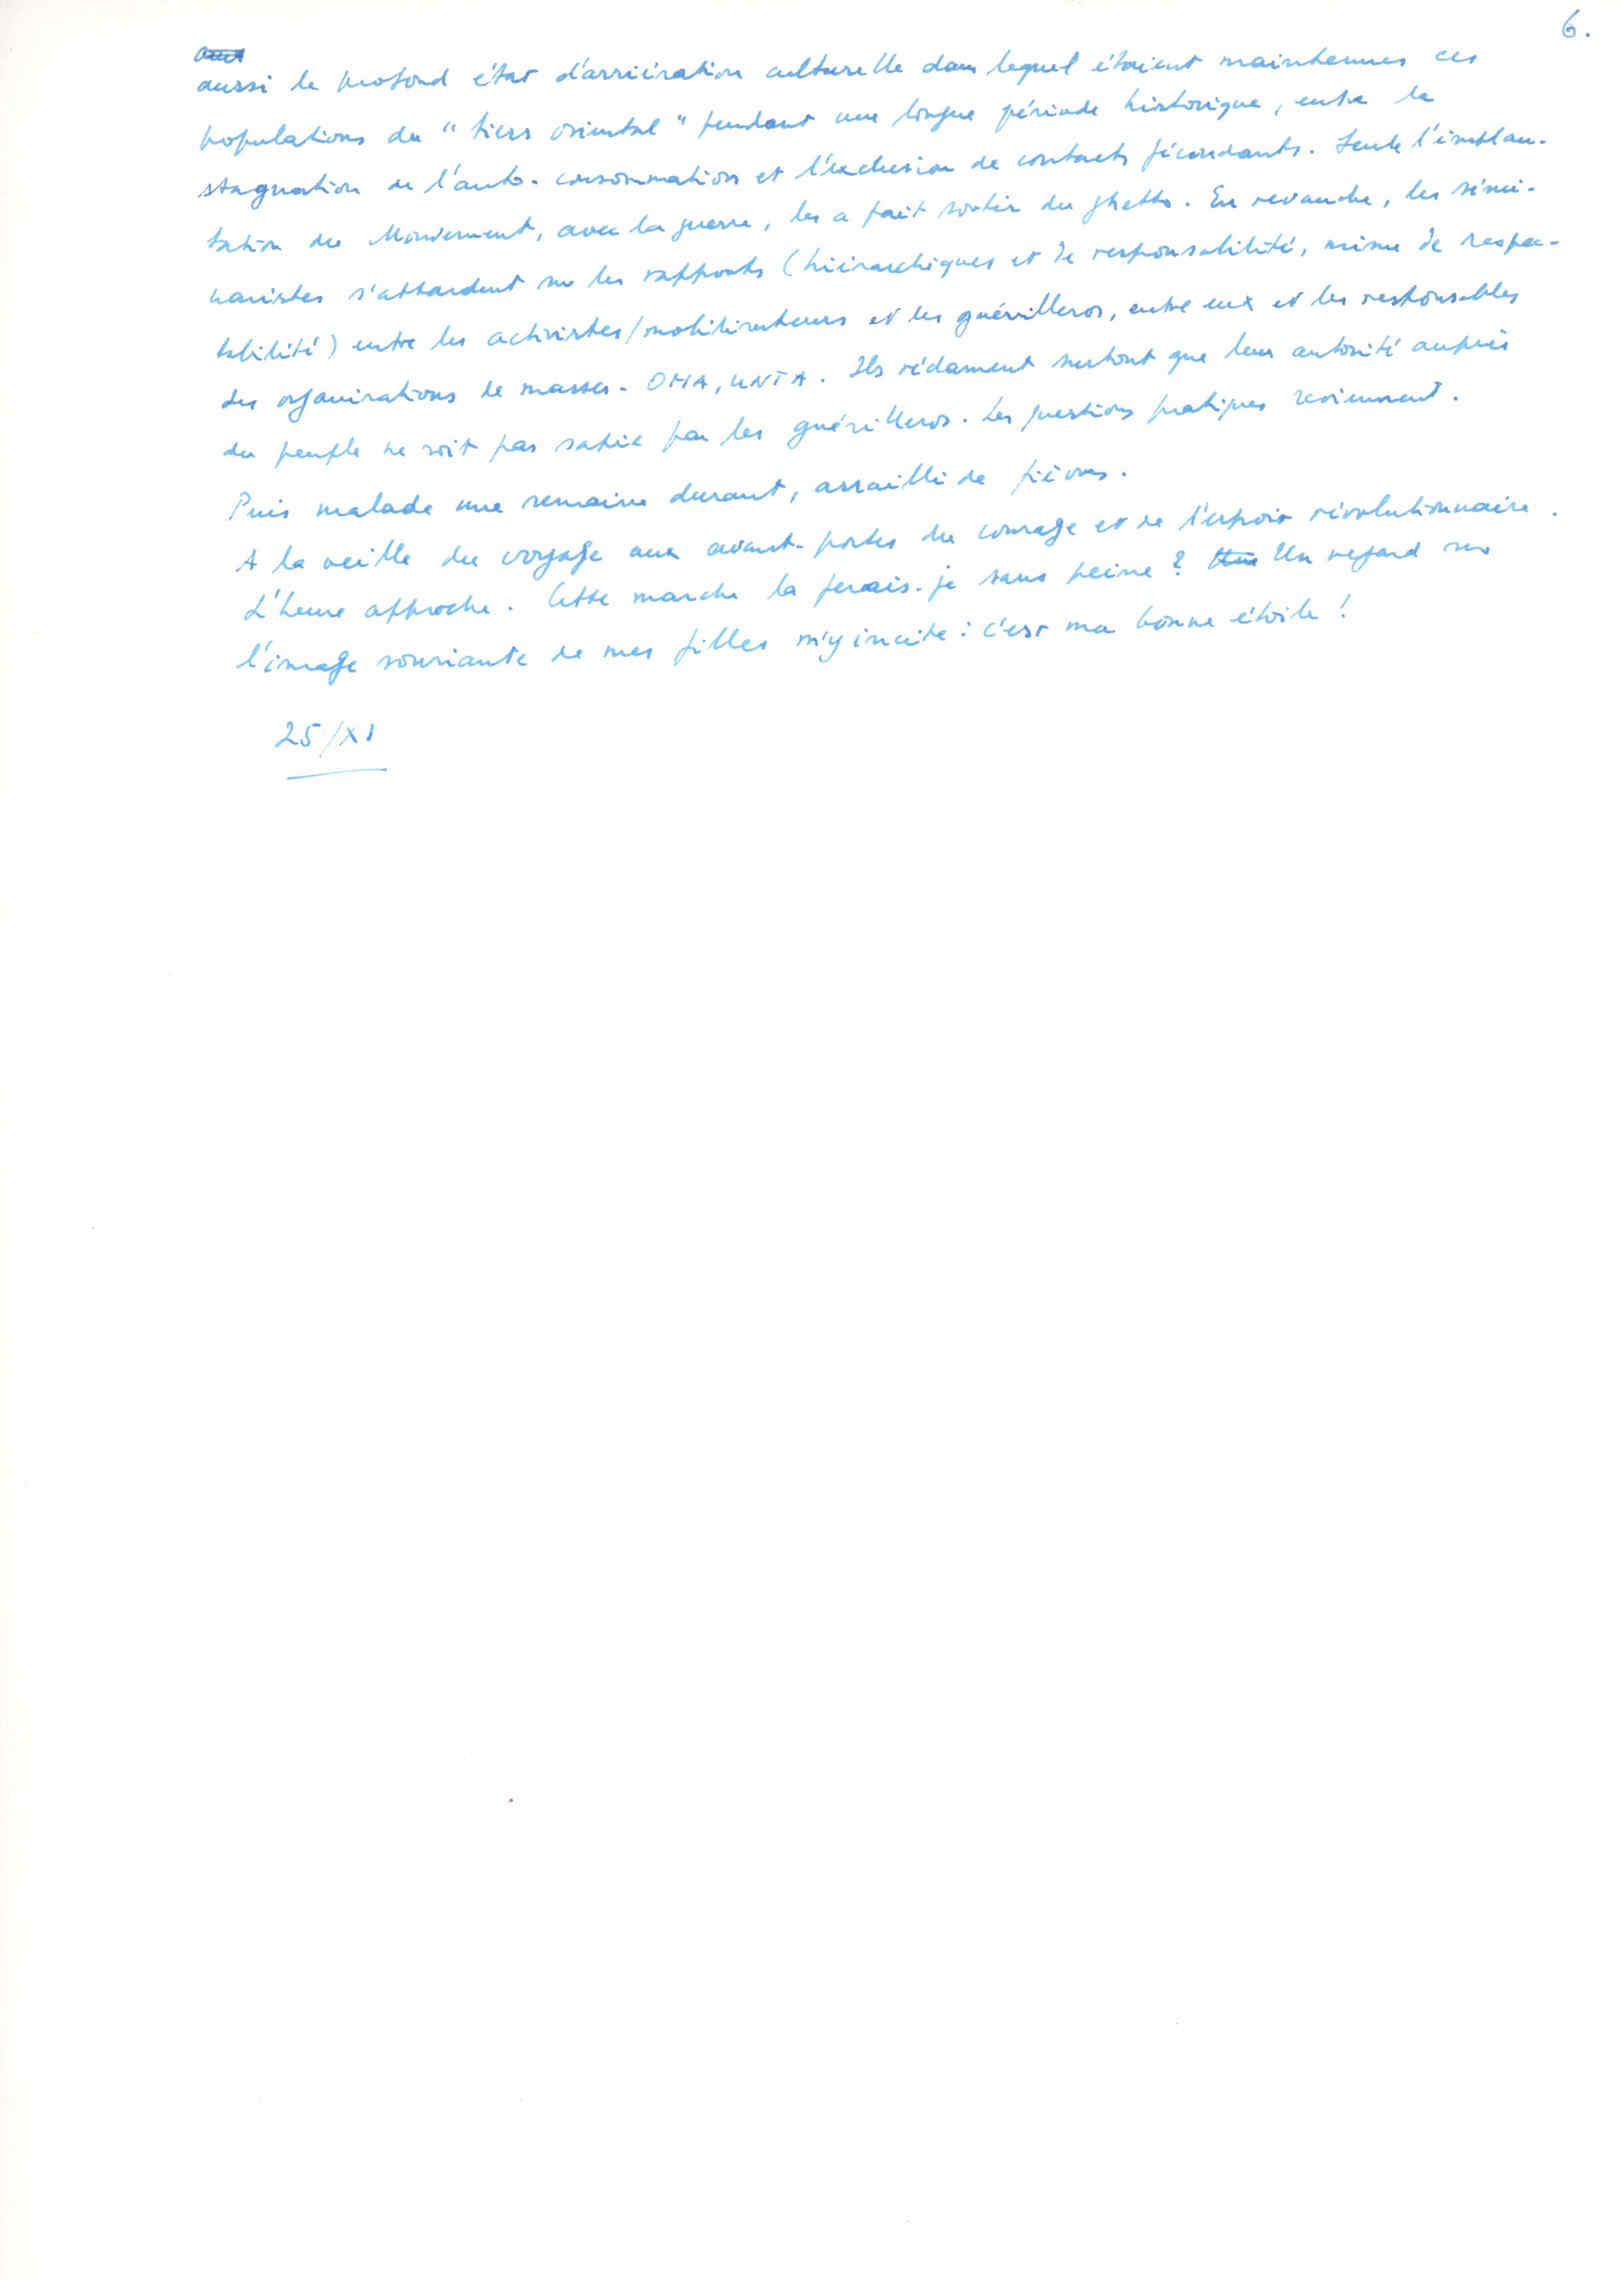 6.
aussi le profond état d'arriération culturelle dans lequel étaient maintenues ces
populations du "tiers oriental" pendant une longue période historique, entre la
stagnation de l'auto-consommation et l'exclusion de contacts fécondants. Seule l'implan-
tation du Mouvement, avec la guerre, les a fait sortir du ghetto. En revanche, les sémi-
naristes s'attardent sur les rapports (hiérarchiques et de responsabilité, même de respec-
tabilité) entre les activistes/mobilisateurs et les guérilleros, entre eux et les responsables
des organisations de masses - OMA, UNTA. Ils réclament surtout que leur autorité auprès
du peuple ne soit pas sapée par les guérilleros. Les questions pratiques reviennent.
Puis malade une semaine durant, assailli de fièvres.
A la veille du voyage aux avant-postes du courage et de l'espoir révolutionnaire.
L'heure approche. Cette marche la ferais-je sans peine? Un regard sur
l'image souriante de mes filles m'y incite : c'est ma bonne étoile!
25/XI